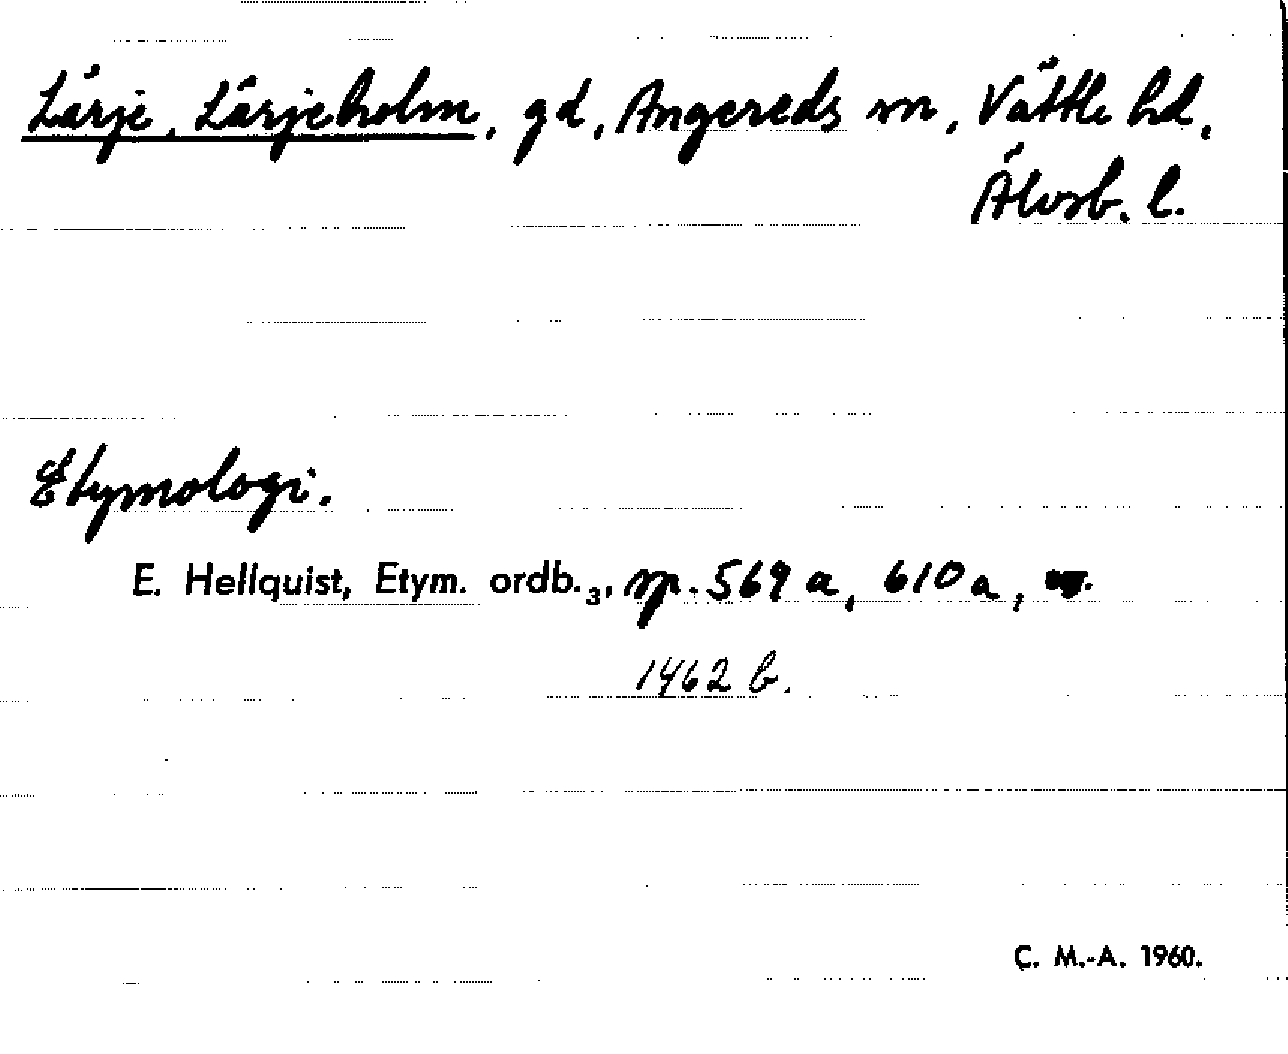 Lärje, Lärjeholm, gd, Angereds sn, Vättle hd,
Älvsb. l.
Etymologi.
E. Hellquist, Etym. ordb.₃, sp. 569 a, 610 a,
1462 b.
C. M.-A. 1960.